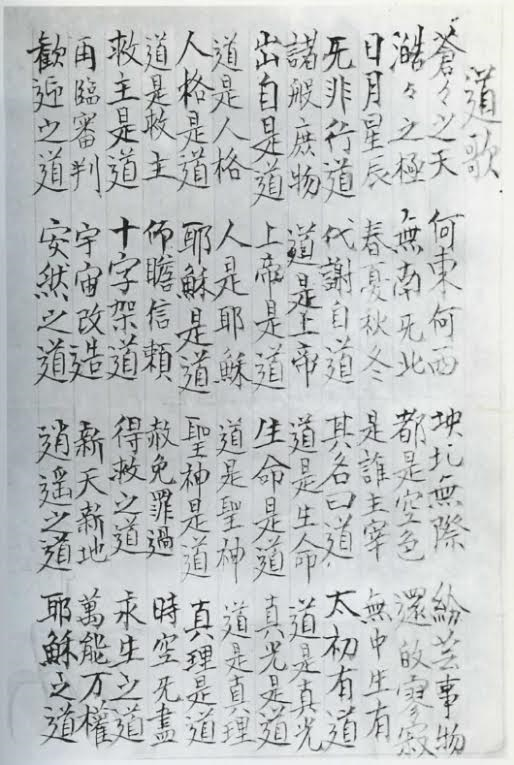 道歌
蒼々之天 何東何西 坱圠無際 紛芸事物
澔々之極 無南无北 都是空色 還的寥寂
日月星辰 春夏秋冬 是誰主宰 無中生有
无非行道 代謝自道 其名曰道 太初有道
諸般庶物 道是上帝 道是生命 道是真光
出自是道 上帝是道 生命是道 真光是道
道是人格 人是耶穌 道是聖神 道是真理
人格是道 耶穌是道 聖神是道 真理是道
道是救主 仰瞻信頼 赦免罪過 時空无盡
救主是道 十字架道 得救之道 永生之道
再臨審判 宇宙改造 新天新地 萬能万權
歡迎之道 安然之道 逍遙之道 耶穌之道